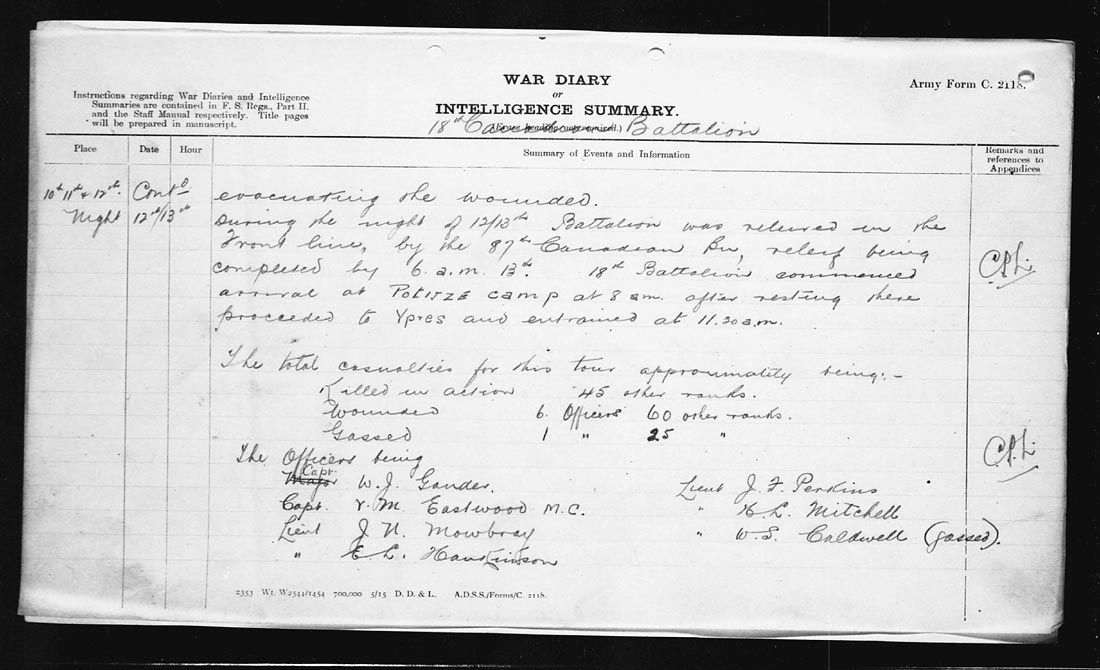 WAR DIARY
or
INTELLIGENCE SUMMARY.
Army Form C. 2118.
Instructions regarding War Diaries and Intelligence
Summaries are contained in F. S. Regs., Part II.
and the Staff Manual respectively. Title pages
will be prepared in manuscript.
(Erase heading not required.)
18th Battalion
Place Date Hour Summary of Events and Information Remarks and
references to
Appendices
10th 11th & 12th. Contd evacuating the wounded.
Night 12th/13th During the night of 12/13th Battalion was relieved in the
Front line, by the 87th Canadian Bn, relief being
completed by 6. a.m. 13th. 18th Battalion commenced
arrival at POTIJZE camp at 8 am. after resting there
proceeded to Ypres and entrained at 11.20 a.m.
The total casualties for this tour approximately being:-
Killed in action 45 other ranks.
Wounded 6. Officers 60 other ranks.
Gassed 1 " 25 "
The Officers being
Major Capt. W. J. Gander. Lieut J. F. Perkins
Capt. V. M. Eastwood M.C. " H. L. Mitchell
Lieut J. N. Mowbray " W. S. Caldwell (gassed).
" E. L. Hawkinson
2353 Wt. W2544/1454 700,000 5/15 D. D. & L. A.D.S.S./Forms/C. 2118.